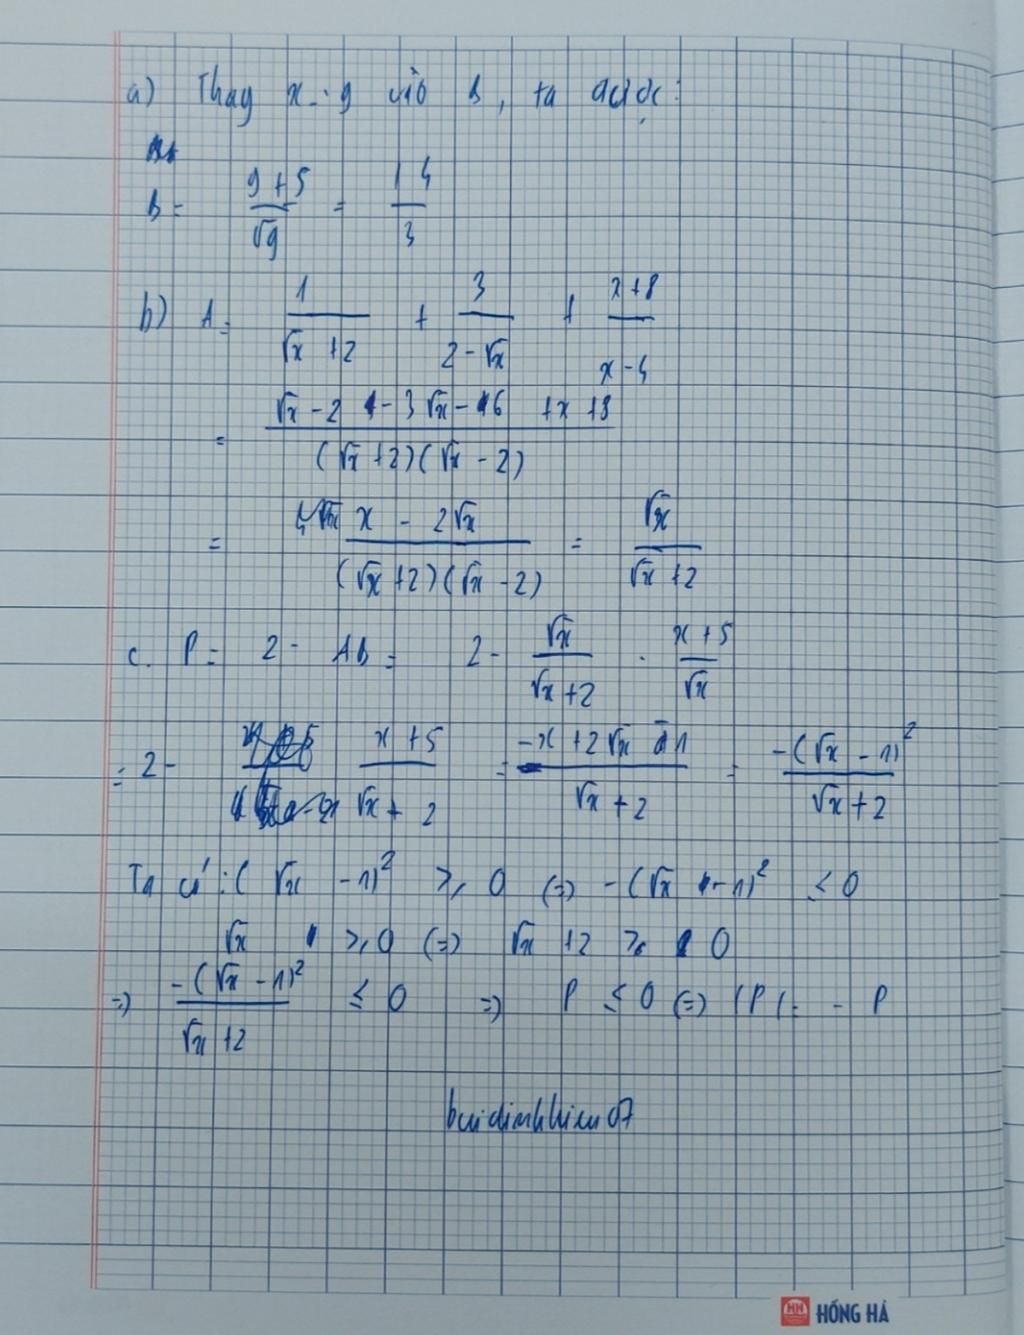 a) Thay x = 9 vào B, ta được:
B = \frac{9+5}{\sqrt{9}} = \frac{14}{3}
b) A = \frac{1}{\sqrt{x}+2} + \frac{3}{2-\sqrt{x}} + \frac{x+8}{x-4}
= \frac{\sqrt{x}-2-3\sqrt{x}-6+x+8}{(\sqrt{x}+2)(\sqrt{x}-2)}
= \frac{x-2\sqrt{x}}{(\sqrt{x}+2)(\sqrt{x}-2)} = \frac{\sqrt{x}}{\sqrt{x}+2}
c. P = 2 - AB = 2 - \frac{\sqrt{x}}{\sqrt{x}+2} . \frac{x+5}{\sqrt{x}}
= 2 - \frac{x+5}{\sqrt{x}+2} = \frac{-x+2\sqrt{x}-1}{\sqrt{x}+2} = \frac{-(\sqrt{x}-1)^2}{\sqrt{x}+2}
Ta có: (\sqrt{x}-1)^2 ≥ 0 (=) -(\sqrt{x}-1)^2 ≤ 0
\sqrt{x} ≥ 0 (=) \sqrt{x}+2 ≥ 0
=) \frac{-(\sqrt{x}-1)^2}{\sqrt{x}+2} ≤ 0 =) P ≤ 0 (=) |P| = - P
buidinhhieu07
HH HỒNG HÀ